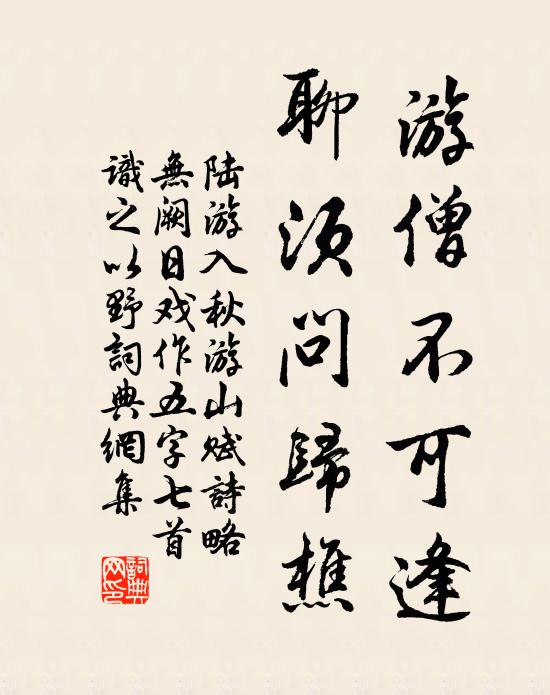 游僧不可逢
聊须問歸樵
陆游入秋游山赋詩略
無阙日戏作五字七首
識之以野詞典網集
詞典网印